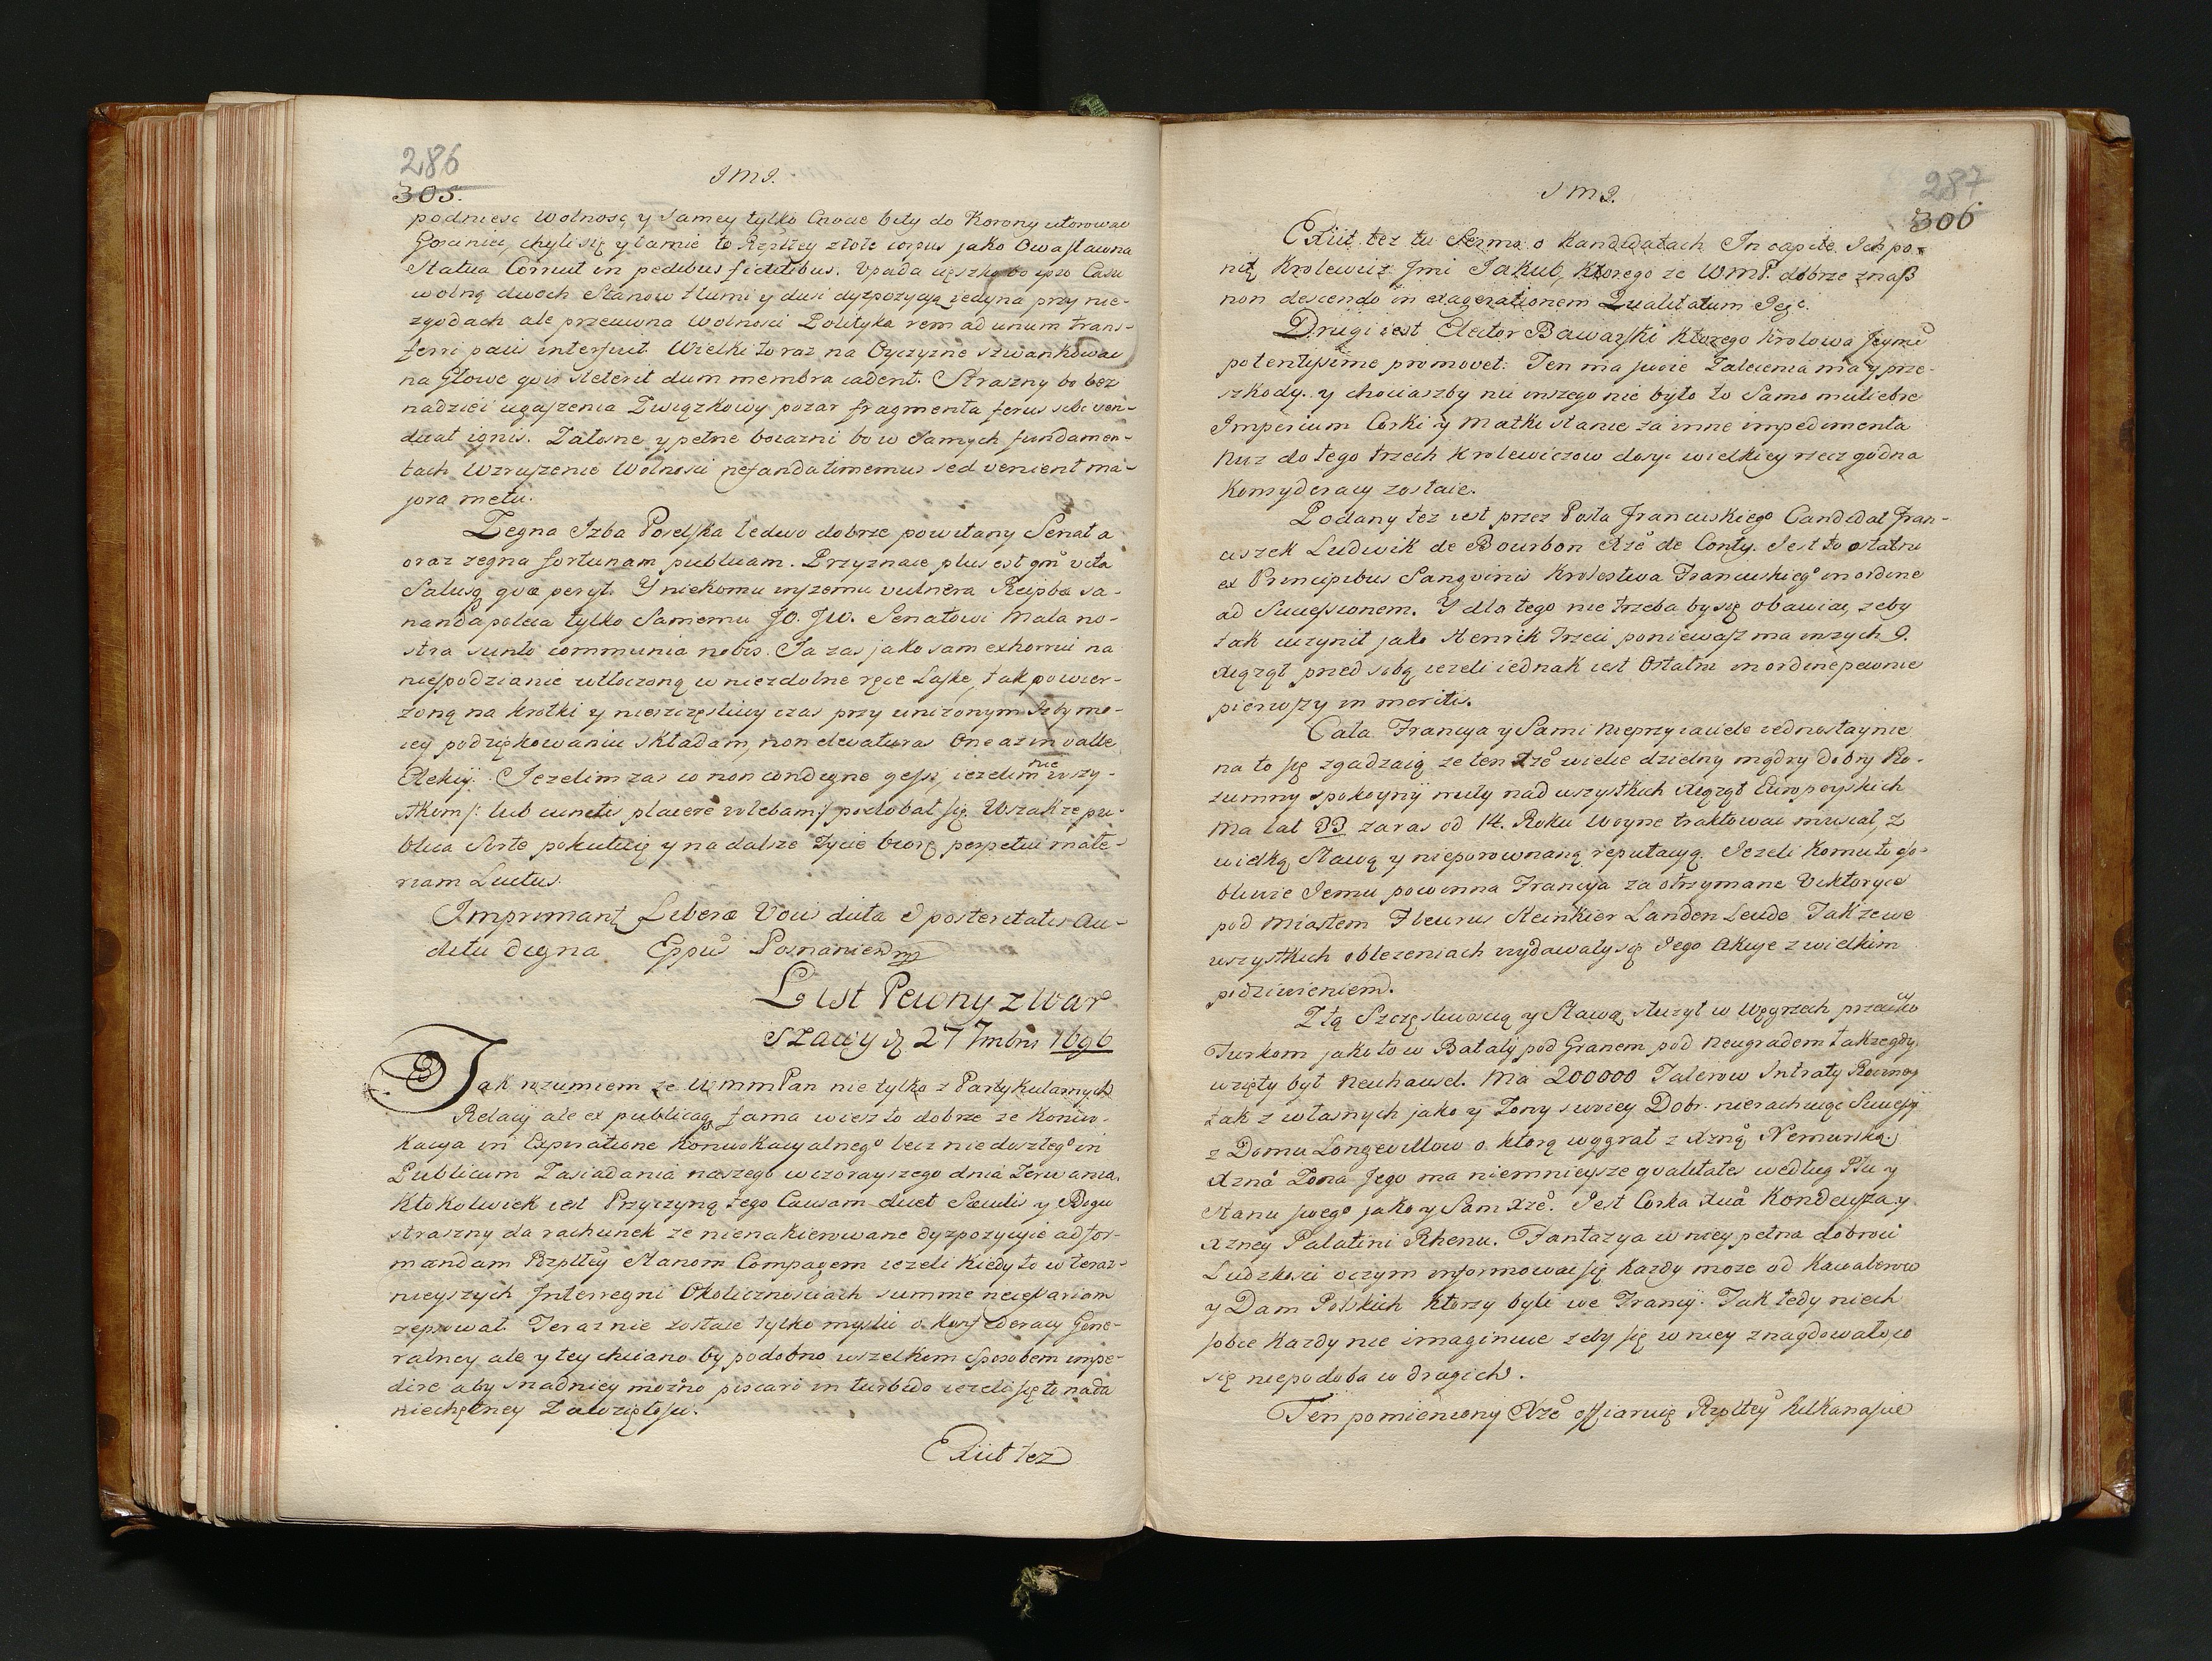 286
305.
J M J.
podniesc Wolnosą y Samey tylko Cnocie bity do Korony utorowac
Gosciniec, chyli się y łamie to Rzpltey złote corpus jako Owa sławna
Statua Comuit in pedibus fictilibus. Upada cięszko bo ipso Casu
wolną dwoch Stanow tłumi y dusi dyzpozycyą jedyna przy nie-
zgodach ale przeciwna Wolnosci Polityka rem ad unum trans-
ferri pacis interfuit. Wielki to raz na Oyczyzne szwankowac
na Głowe quis steterit dum membra cadent. Straszny bo bez
nadzieji ugaszenia Związkowy pozar fragmenta ferus sibi ven-
dicat ignis. Załosne y pełne boiazni bo w samych fundamen-
tach Wzruszenie Wolnosci nefanda timemus sed venient ma-
jora metu.
Zegna Izba Poselska ledwo dobrze powitany Senat a
oraz zegna fortunam publicam. Przyznaie plus est qm vita
Salusq quæ perijt. Y niekomu inszemu vulnera Reipbæ sa-
nanda poleca tylko Samemu JO. JW. Senatowi Mala no-
stra sunto communia nobis. Ja zas jako sam exhorrui na
niespodzianie wtłoczoną w niezdolne ręce Laskę, tak powier-
zoną na krotki y nieszczęsliwy czas przy unizonym Izby mo-
iey podziękowaniu składam, non elevaturus One az in valle
Elekij. Jezelim zas co non condigne gessi, jezelim nie wszy-
stkim /: lub cunctis placere volebam :/ podobał się. Wszakze pu-
blica Sorte pokutuię y na dalsze Zycie biorę perpetui mate-
riam Luctus.
Imprimant Liberæ Voci dicta & posteritatis Au-
ditu digna Eppus Posnaniensis
List Pewny z War
szawy d. 27 7mbris 1696
Jak rozumiem ze WmmPan nie tylko z Partykularnych
Relacij ale ex publicaq fama wiesz to dobrze ze Konwo-
kacya in Expiratione Konwokacyalnego lecz nie doszłego in
Publicum Zasiadania naszego wczorayszego dnia Zerwana.
Ktokolwiek iest Przyczyną tego Causam dicet Sæculis y Bogu
straszny da rachunek ze nienakierowane dyzpozycyie ad for-
mandam Rzplltey Stanom Compagem jezeli kiedy to w teraz-
nieyszych Interregni Okolicznosciach summe necessariam
zepsował. Teraz nie zostaie tylko myslic o Konfederacij Gene-
ralney ale y tey chciano by podobno wszelkim sposobem impe-
dire aby snadniey mozno piscari in turbido jezeli się to nada
niechętney Zawziętosci.
Exiit tez
J M J.
287
306
Exiit tez tu Sermo o Kandidatach In capite Ich po-
nię Krolewicz Jmi Jakub, ktorego ze WmP. dobrze znasz
non descendo in exagerationem Qualitatum Jego.
Drugi iest Elector Bawarski ktorego Krolowa Jeymc
potentissime promovet. Ten ma swoie Zalecenia ma y prze-
szkody. y chociaszby nic inszego nie było to Samo muliebre
Imperium Corki y Matki stanie za inne impedimenta
Nuz do tego trzech Krolewiczow dosyc wielkiey rzecz godna
Konsyderacij zostaie.
Podany tez iest przez Posła Francuskiego Candidat Fran-
ciszek Ludwik de Bourbon Xżę de Conty. Jest to ostatni
ex Principibus Sangvinis Krolestwa Francuskiego in ordine
ad Successionem. Y dla tego nie trzeba by się obawiac, zeby
tak uczynił jako Henrik Trzeci poniewasz ma inszych 9.
Xiąząt przed sobą jezeli iednak iest Ostatni in ordine pewnie
pierwszy in meritis.
Cała Francya y Sami Nieprzyiaciele jednostaynie
na to się zgadzaią ze ten Xżę wielce dzielny mądry dobry Ro-
zumny spokoyny miły nad wszystkich Xiąząt Europeyskich
Ma lat 33 zaras od 14. Roku Woyne traktowac musiał, z
wielką Sławą y nieporownaną reputacyą. Jezeli komu to oso-
bliwie Jemu powinna Francya za otrzymane Viktorye
pod Miastem Fleurus Steinkier Landen Leude. Takze we
wszystkich oblezeniach wydawały się Jego Akcye z wielkim
podziwieniem.
Z tą Szczęsliwoscią y Sławą słuzył w Węgrzech przeciwko
Turkom jako to w Batalij pod Granem pod Neugradem takze gdy
wzięty był Neuhausel. Ma 200000 Talerow Intraty Roczney
tak z własnych jako y Zony swoiey Dobr. nierachuiąc Sukcessij
z Domu Longevillow o ktorą wygrał z Xżną Nemurską.
Xzna Zona Jego ma niemnieysze qualitates według Płci y
stanu swego jako y Sam Xże. Jest Corka Xcia Kondeusza y
Xzney Palatini Rhenu. Fantazya w niey pełna dobroci
Ludzkosci oczym informowac się kazdy moze od Kawalerow
y Dam Polskich ktorzy byli we Francij. Tak tedy niech
sobie kazdy nie imaginuie zeby się w niey znaydowało, co
się niepodoba w drugich.
Ten pomieniony Xżę offiaruię Rzpltey kilkanascie